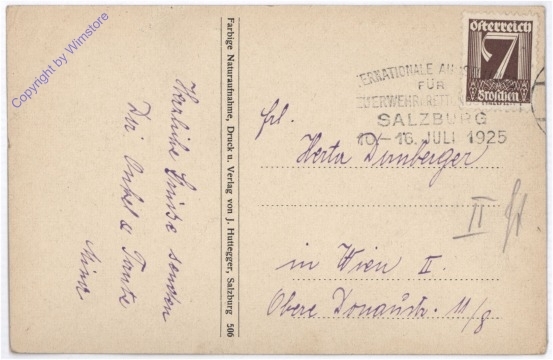 Copyright by Wimstore
Herzliche Grüße senden
Dir Onkel & Tante
Farbige Naturaufnahme, Druck u. Verlag von J. Huttegger, Salzburg 506
Österreich
7
Groschen
ERNATIONALE AU
FÜR
EUERWEHR RETT
SALZBURG
10.-16. JULI 1925
Frl.
Herta Dirnberger
II
in Wien II.
Obere Donaustr. 11/9